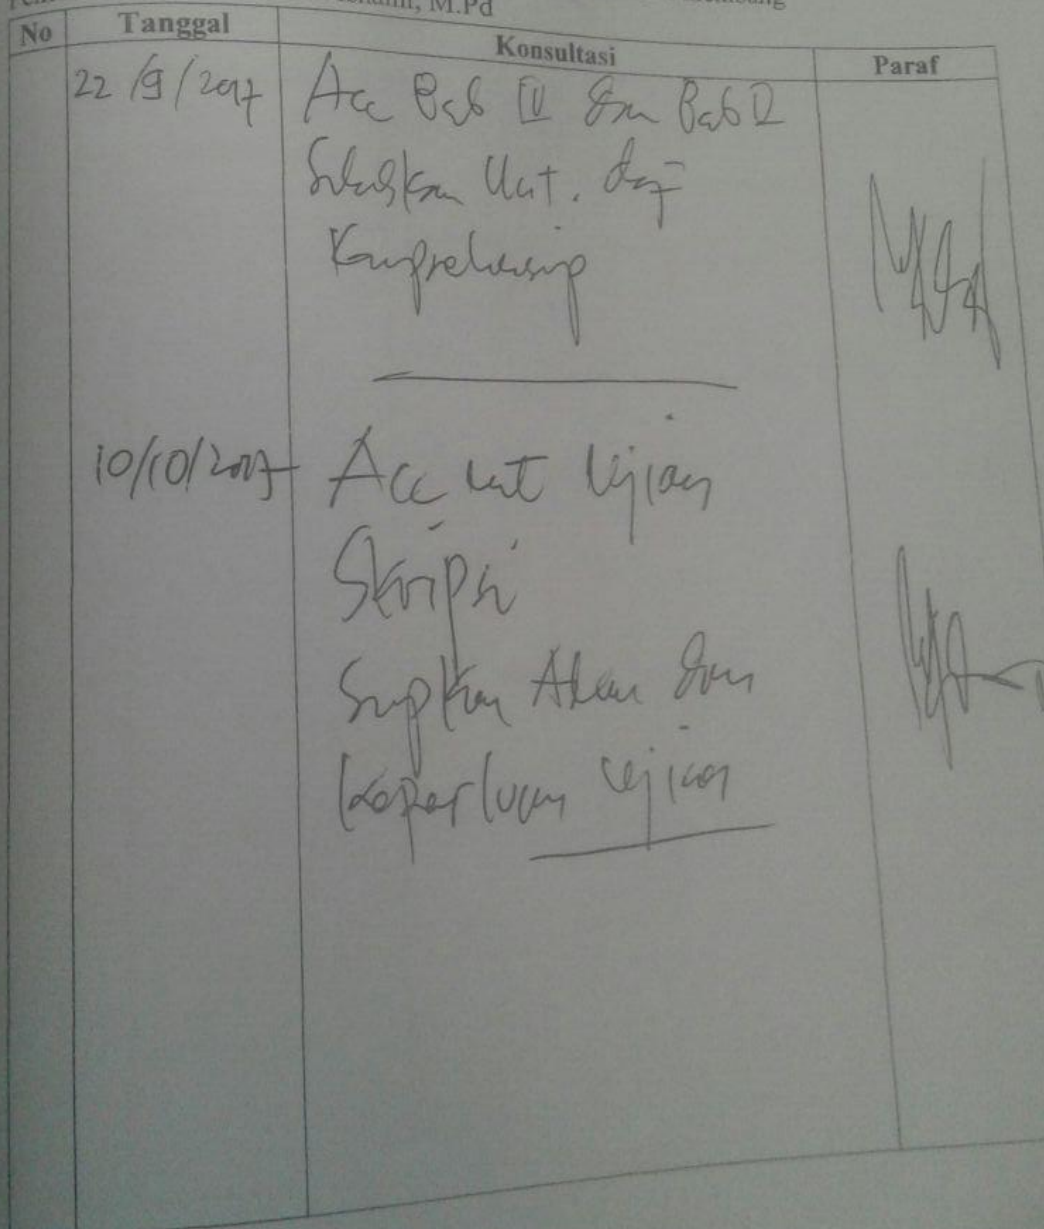 M.Pd
No Tanggal Konsultasi Paraf
22/9/2017 Acc Bab IV dan Bab V
Silahkan Unt. daf
Komprehensip
10/10/2017 Acc unt Ujian
Skripsi
Siapkan Abau dan
keperluan ujian